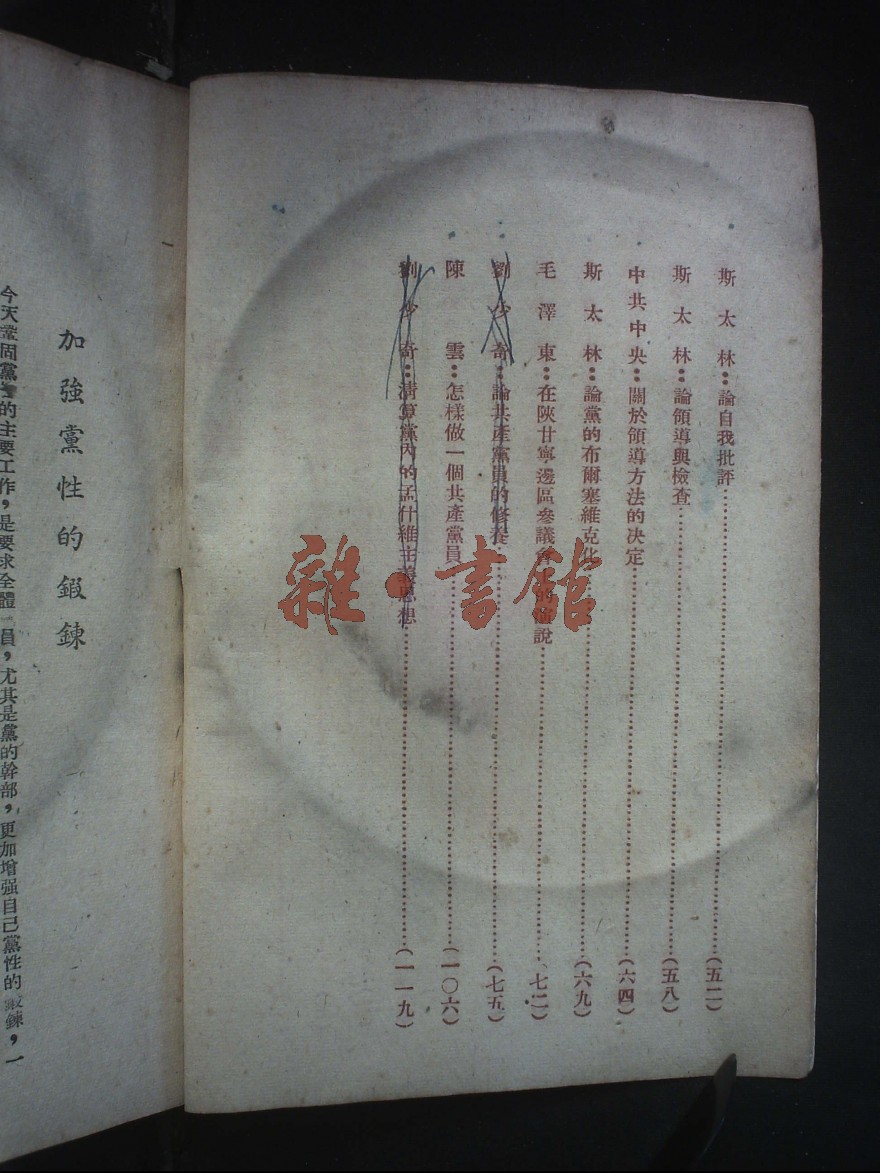 斯太林：論自我批評……(五二)
斯太林：論領導與檢查……(五八)
中共中央：關於領導方法的決定……(六四)
斯太林：論黨的布爾塞維克化……(六九)
毛澤東：在陝甘寧邊區參議會的演說……(七二)
劉少奇：論共產黨員的修養……(七五)
陳雲：怎樣做一個共產黨員……(一〇六)
劉少奇：清算黨內的孟什維主義思想……(一一九)
加強黨性的鍛鍊
今天鞏固黨的主要工作，是要求全體員，尤其是黨的幹部，更加增强自己黨性的鍛鍊，一
雜·書館